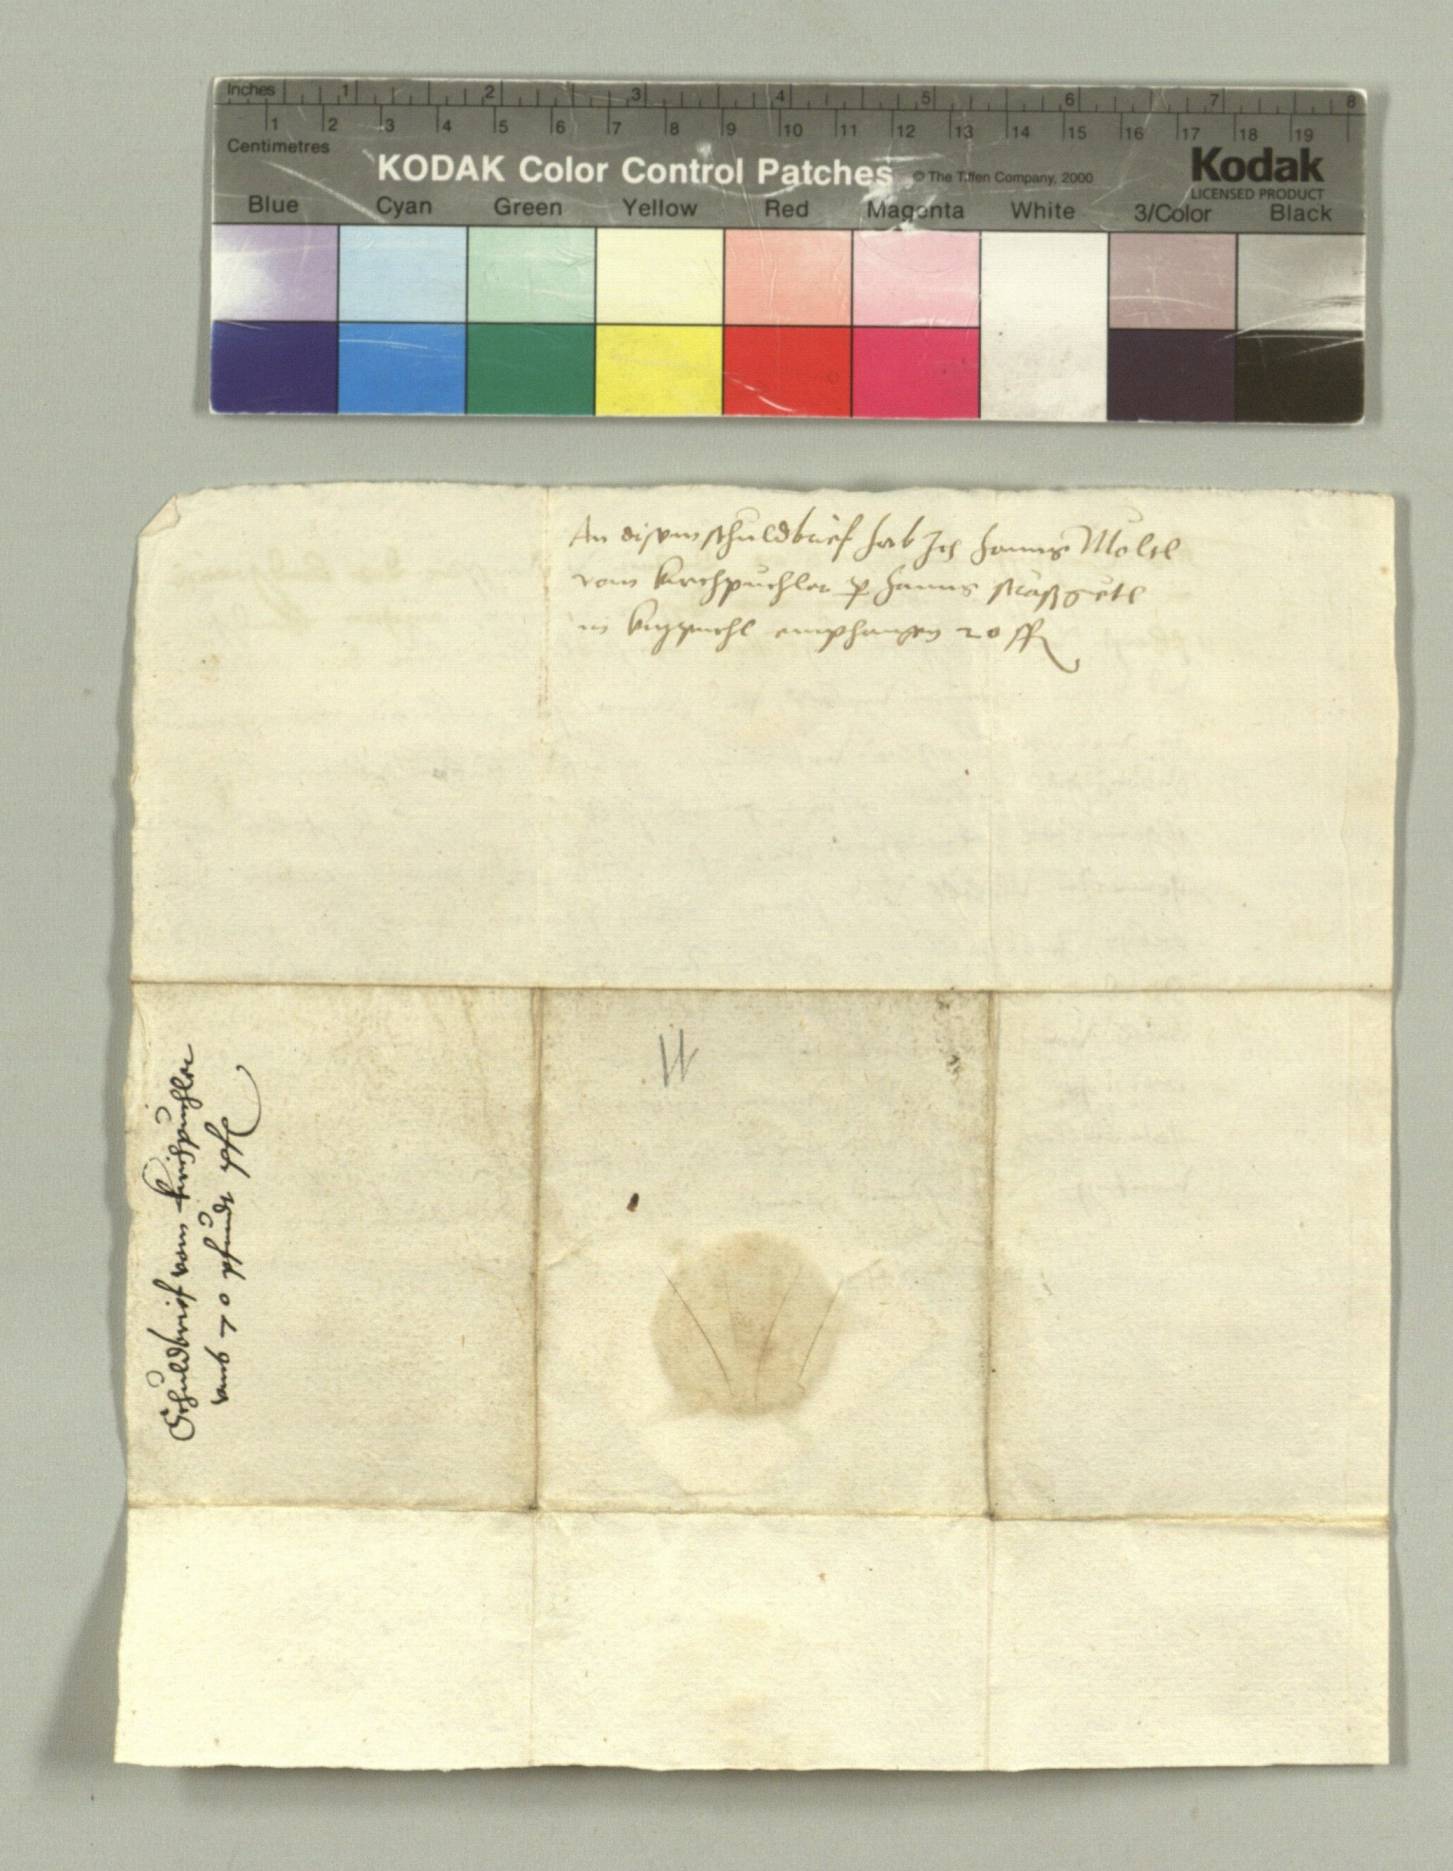 Inches 1 2 3 4 5 6 7 8
1 2 3 4 5 6 7 8 9 10 11 12 13 14 15 16 17 18 19
Centimetres
KODAK Color Control Patches © The Tiffen Company, 2000 Kodak
LICENSED PRODUCT
Blue Cyan Green Yellow Red Magenta White 3/Color Black
An disem schuldbrief hab Ich Hanns Moltl
vom kirchpuchler p Hanns
in kizpuchl emphangen 20
Schuldbrief vom kirchpuchler
umb 70 phundt